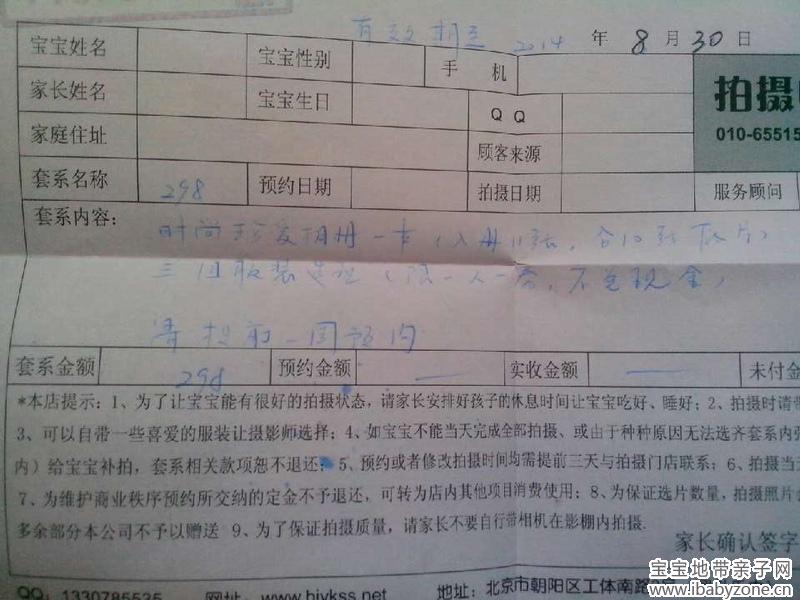 有效期至 2014 年 8 月 30 日
宝宝姓名 宝宝性别 手 机
家长姓名 宝宝生日 QQ
拍摄
010-65515
家庭住址 顾客来源
套系名称 298 预约日期 拍摄日期 服务顾问
套系内容: 时尚珍爱相册一本(入册11张,含10张底片)
三组服装造型(限一人一券,不兑现金)
需提前一周预约
套系金额 298 预约金额 — 实收金额 — 未付金
*本店提示: 1、为了让宝宝能有很好的拍摄状态,请家长安排好孩子的休息时间让宝宝吃好、睡好; 2、拍摄时请带
3、可以自带一些喜爱的服装让摄影师选择; 4、如宝宝不能当天完成全部拍摄、或由于种种原因无法选齐套系内张
内)给宝宝补拍,套系相关款项恕不退还; 5、预约或者修改拍摄时间均需提前三天与拍摄门店联系; 6、拍摄当天
7、为维护商业秩序预约所交纳的定金不予退还,可转为店内其他项目消费使用; 8、为保证选片数量,拍摄照片
多余部分本公司不予以赠送 9、为了保证拍摄质量,请家长不要自行带相机在影棚内拍摄.
家长确认签字
QQ: 1330785535 网址: www.bjykss.net 地址: 北京市朝阳区工体南路
宝宝地带亲子网
www.ibabyzone.cn